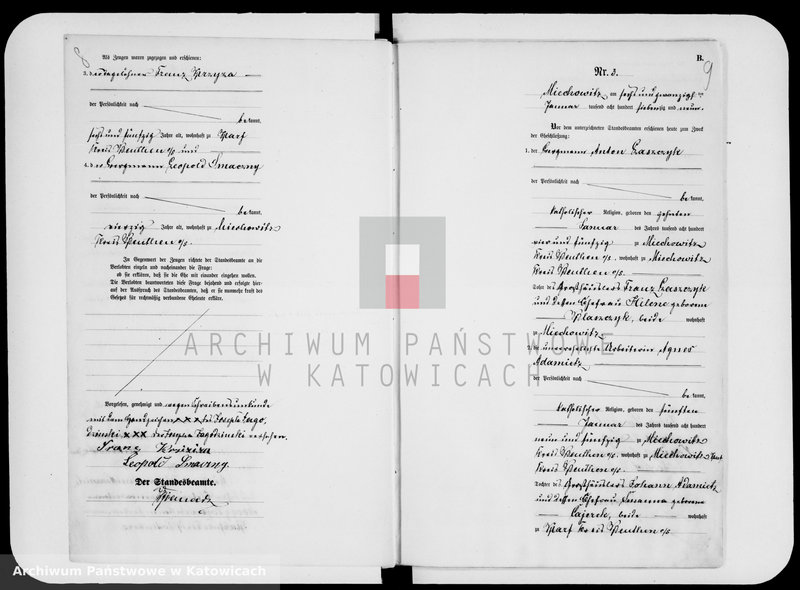 8
Als Zeugen waren zugezogen und erschienen:
3. der Tagelöhner Franz
der Persönlichkeit nach
be kannt,
sechs und fünfzig Jahre alt, wohnhaft zu Karf
Kreis Beuthen o/s und
4. der Bergmann Leopold Smaczny
der Persönlichkeit nach
be kannt,
vierzig Jahre alt, wohnhaft zu Miechowitz
Kreis Beuthen o/s.
In Gegenwart der Zeugen richtete der Standesbeamte an die
Verlobten einzeln und nacheinander die Frage:
ob sie erklären, daß sie die Ehe mit einander eingehen wollen.
Die Verlobten beantworteten diese Frage bejahend und erfolgte hier-
auf der Ausspruch des Standesbeamten, daß er sie nunmehr kraft des
Gesetzes für rechtmäßig verbundene Eheleute erkläre.
Vorgelesen, genehmigt und wegen Schreibensunkunde
mit dem Handzeichen xxx des Joseph
xxx der versehen.
Franz
Leopold Smaczny.
Der Standesbeamte.
B.
9
Nr. 3.
Miechowitz am sechs und zwanzigsten
Januar tausend acht hundert siebenzig und neun.
Vor dem unterzeichneten Standesbeamten erschienen heute zum Zweck
der Eheschließung:
1. der Bergmann Anton Laszczyk
der Persönlichkeit nach
be kannt,
katholischer Religion, geboren den zehnten
Januar des Jahres tausend acht hundert
vier und fünfzig zu Miechowitz
Kreis Beuthen o/s, wohnhaft zu Miechowitz
Kreis Beuthen o/s.
Sohn des Großhäuslers Franz Laszczyk
und dessen Ehefrau Helene geborene
Blaszczyk, beide wohnhaft
zu Miechowitz
2. die unverehelichte Arbeiterin Agnes
Adamietz
der Persönlichkeit nach
be kannt,
katholischer Religion, geboren den fünften
Januar des Jahres tausend acht hundert
neun und fünfzig zu Miechowitz
Kreis Beuthen o/s, wohnhaft zu Miechowitz
Kreis Beuthen o/s.
Tochter des Großhäuslers Johann Adamietz
und dessen Ehefrau Susanna geborene
beide wohnhaft
zu Karf Kreis Beuthen o/s
ARCHIWUM PAŃSTWOWE
W KATOWICACH
Archiwum Państwowe w Katowicach